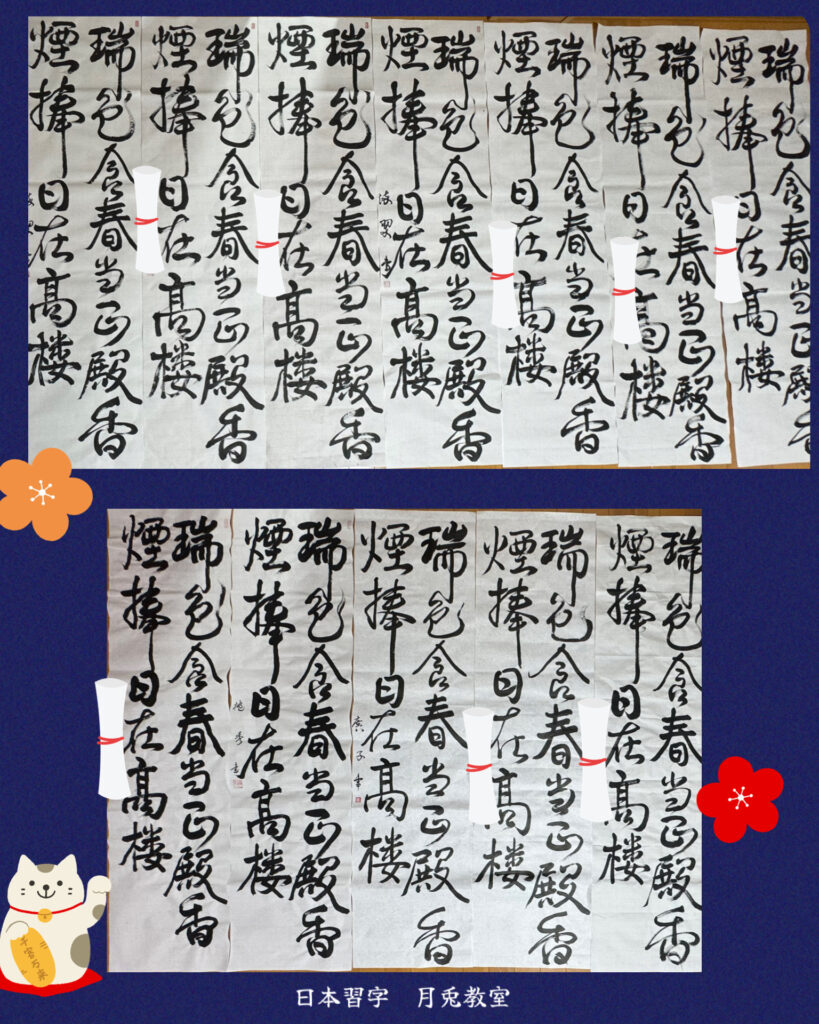 瑞色含春当正殿香
煙捧日在髙楼
瑞色含春当正殿香
煙捧日在髙楼
瑞色含春当正殿香
煙捧日在髙楼
瑞色含春当正殿香
煙捧日在髙楼
瑞色含春当正殿香
煙捧日在髙楼
瑞色含春当正殿香
煙捧日在髙楼
瑞色含春当正殿香
煙捧日在髙楼
瑞色含春当正殿香
煙捧日在髙楼
瑞色含春当正殿香
煙捧日在髙楼
瑞色含春当正殿香
煙捧日在髙楼
廣子書
瑞色含春当正殿香
煙捧日在髙楼
瑞色含春当正殿香
煙捧日在髙楼
千客万来
日本習字　月兎教室